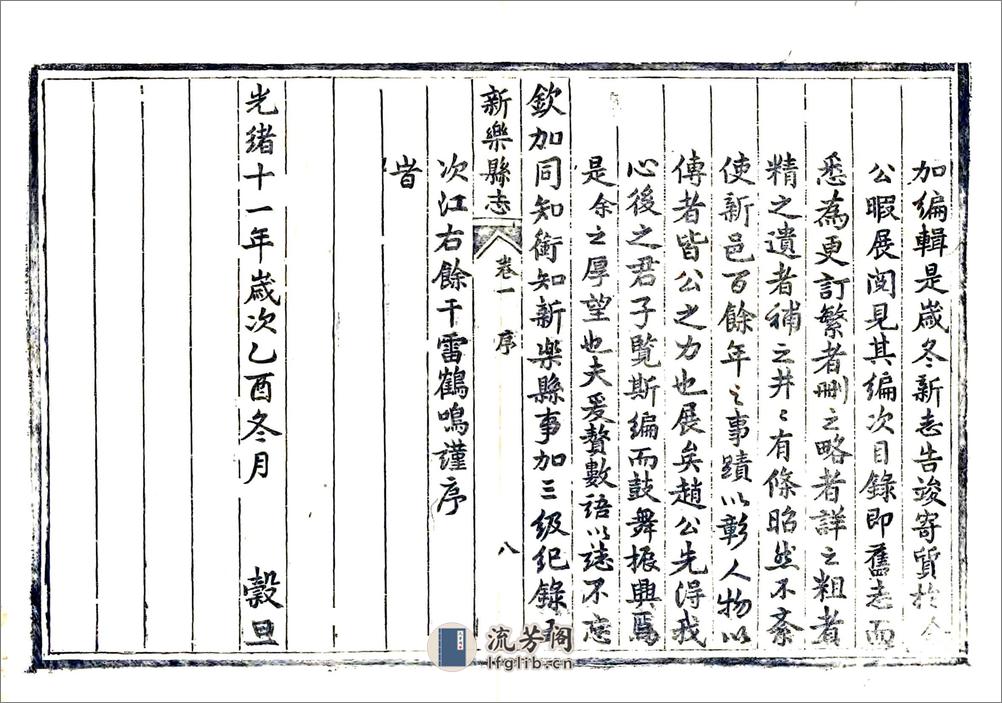 加編輯是歲冬新志告竣寄質於余
公暇展閱見其編次目錄即舊志而
悉為更訂繁者刪之略者詳之粗者
精之遺者補之井〻有條昭然不紊
使新邑百餘年〻事蹟以彰人物以
傳者皆公之力也展矣趙公先得我
心後之君子覽斯編而鼓舞振興焉
是余之厚望也夫爰贅數語以誌不忘
欽加同知銜知新樂縣事加三級紀錄五
新樂縣志 卷一 序 八
次江右餘干雷鶴鳴謹序
旹
光緒十一年歲次乙酉冬月 穀旦
流芳阁
lfglib.cn